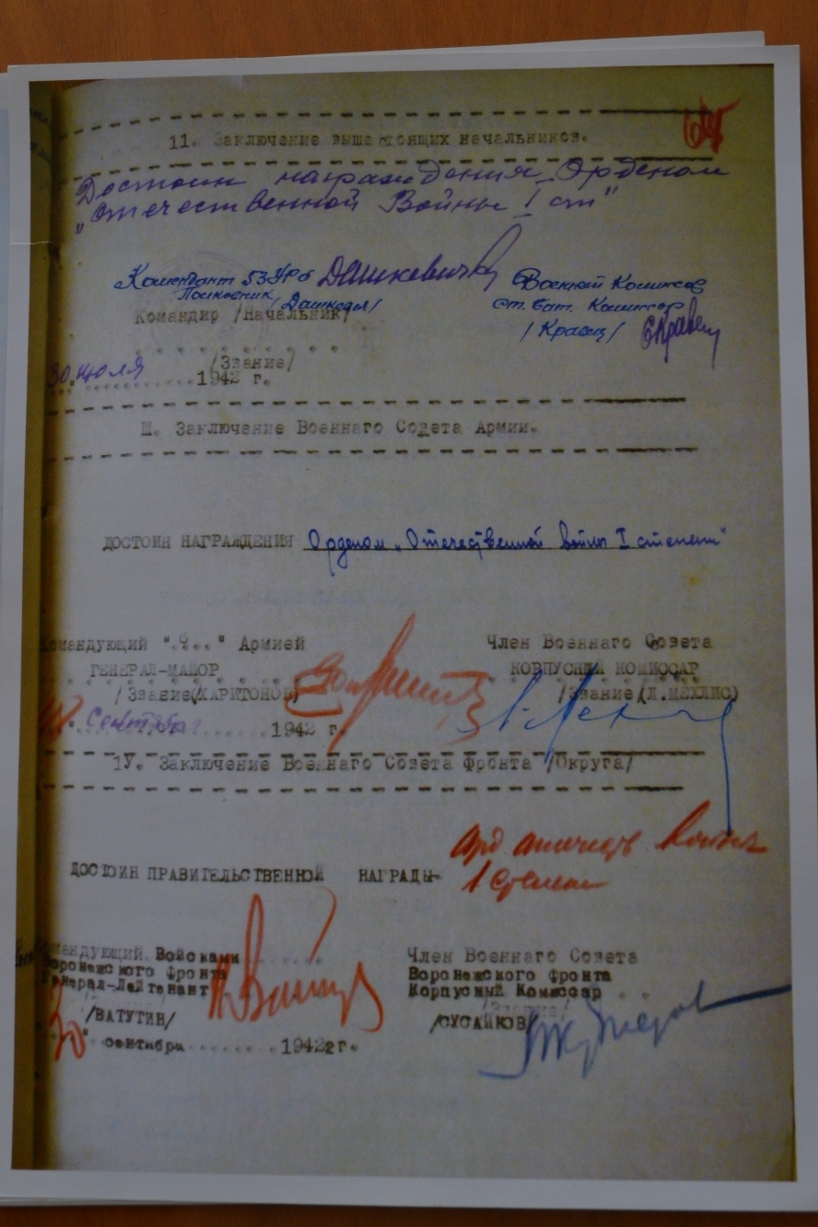 64
11. Заключение вышестоящих начальников.
Достоин награждения Орденом
"Отечественной Войны I ст"
Комендант 53 Ур б Дашкевич Военный Комиссар
Полковник /Дашкевич/ ст. бат. Комиссар
Командир /Начальник/ /Кравец/ Кравец
/Звание/
30. июля 1942 г.
Ш. Заключение Военнаго Совета Армии.
ДОСТОИН НАГРАЖДЕНИЯ Орденом „Отечественной войны I степени"
Командующий "6..." Армией Член Военнаго Совета
ГЕНЕРАЛ-МАЙОР КОРПУСНЫЙ КОМИССАР
/Звание(ХАРИТОНОВ) /Звание(Л.МЕХЛИС)
" Сентября 1942 г.
1У. Заключение Военнаго Совета Фронта /Округа/
орд отечеств Войны
ДОСТОИН ПРАВИТЕЛЬСТВЕННОЙ НАГРАДЫ- 1 степени
Командующий Войсками Член Военнаго Совета
Воронежского фронта Воронежского фронта
Генерал-Лейтенант Корпусный Комиссар
/Звание/
/ВАТУТИН/ /СУСАЙКОВ/
30" сентября 1942г.